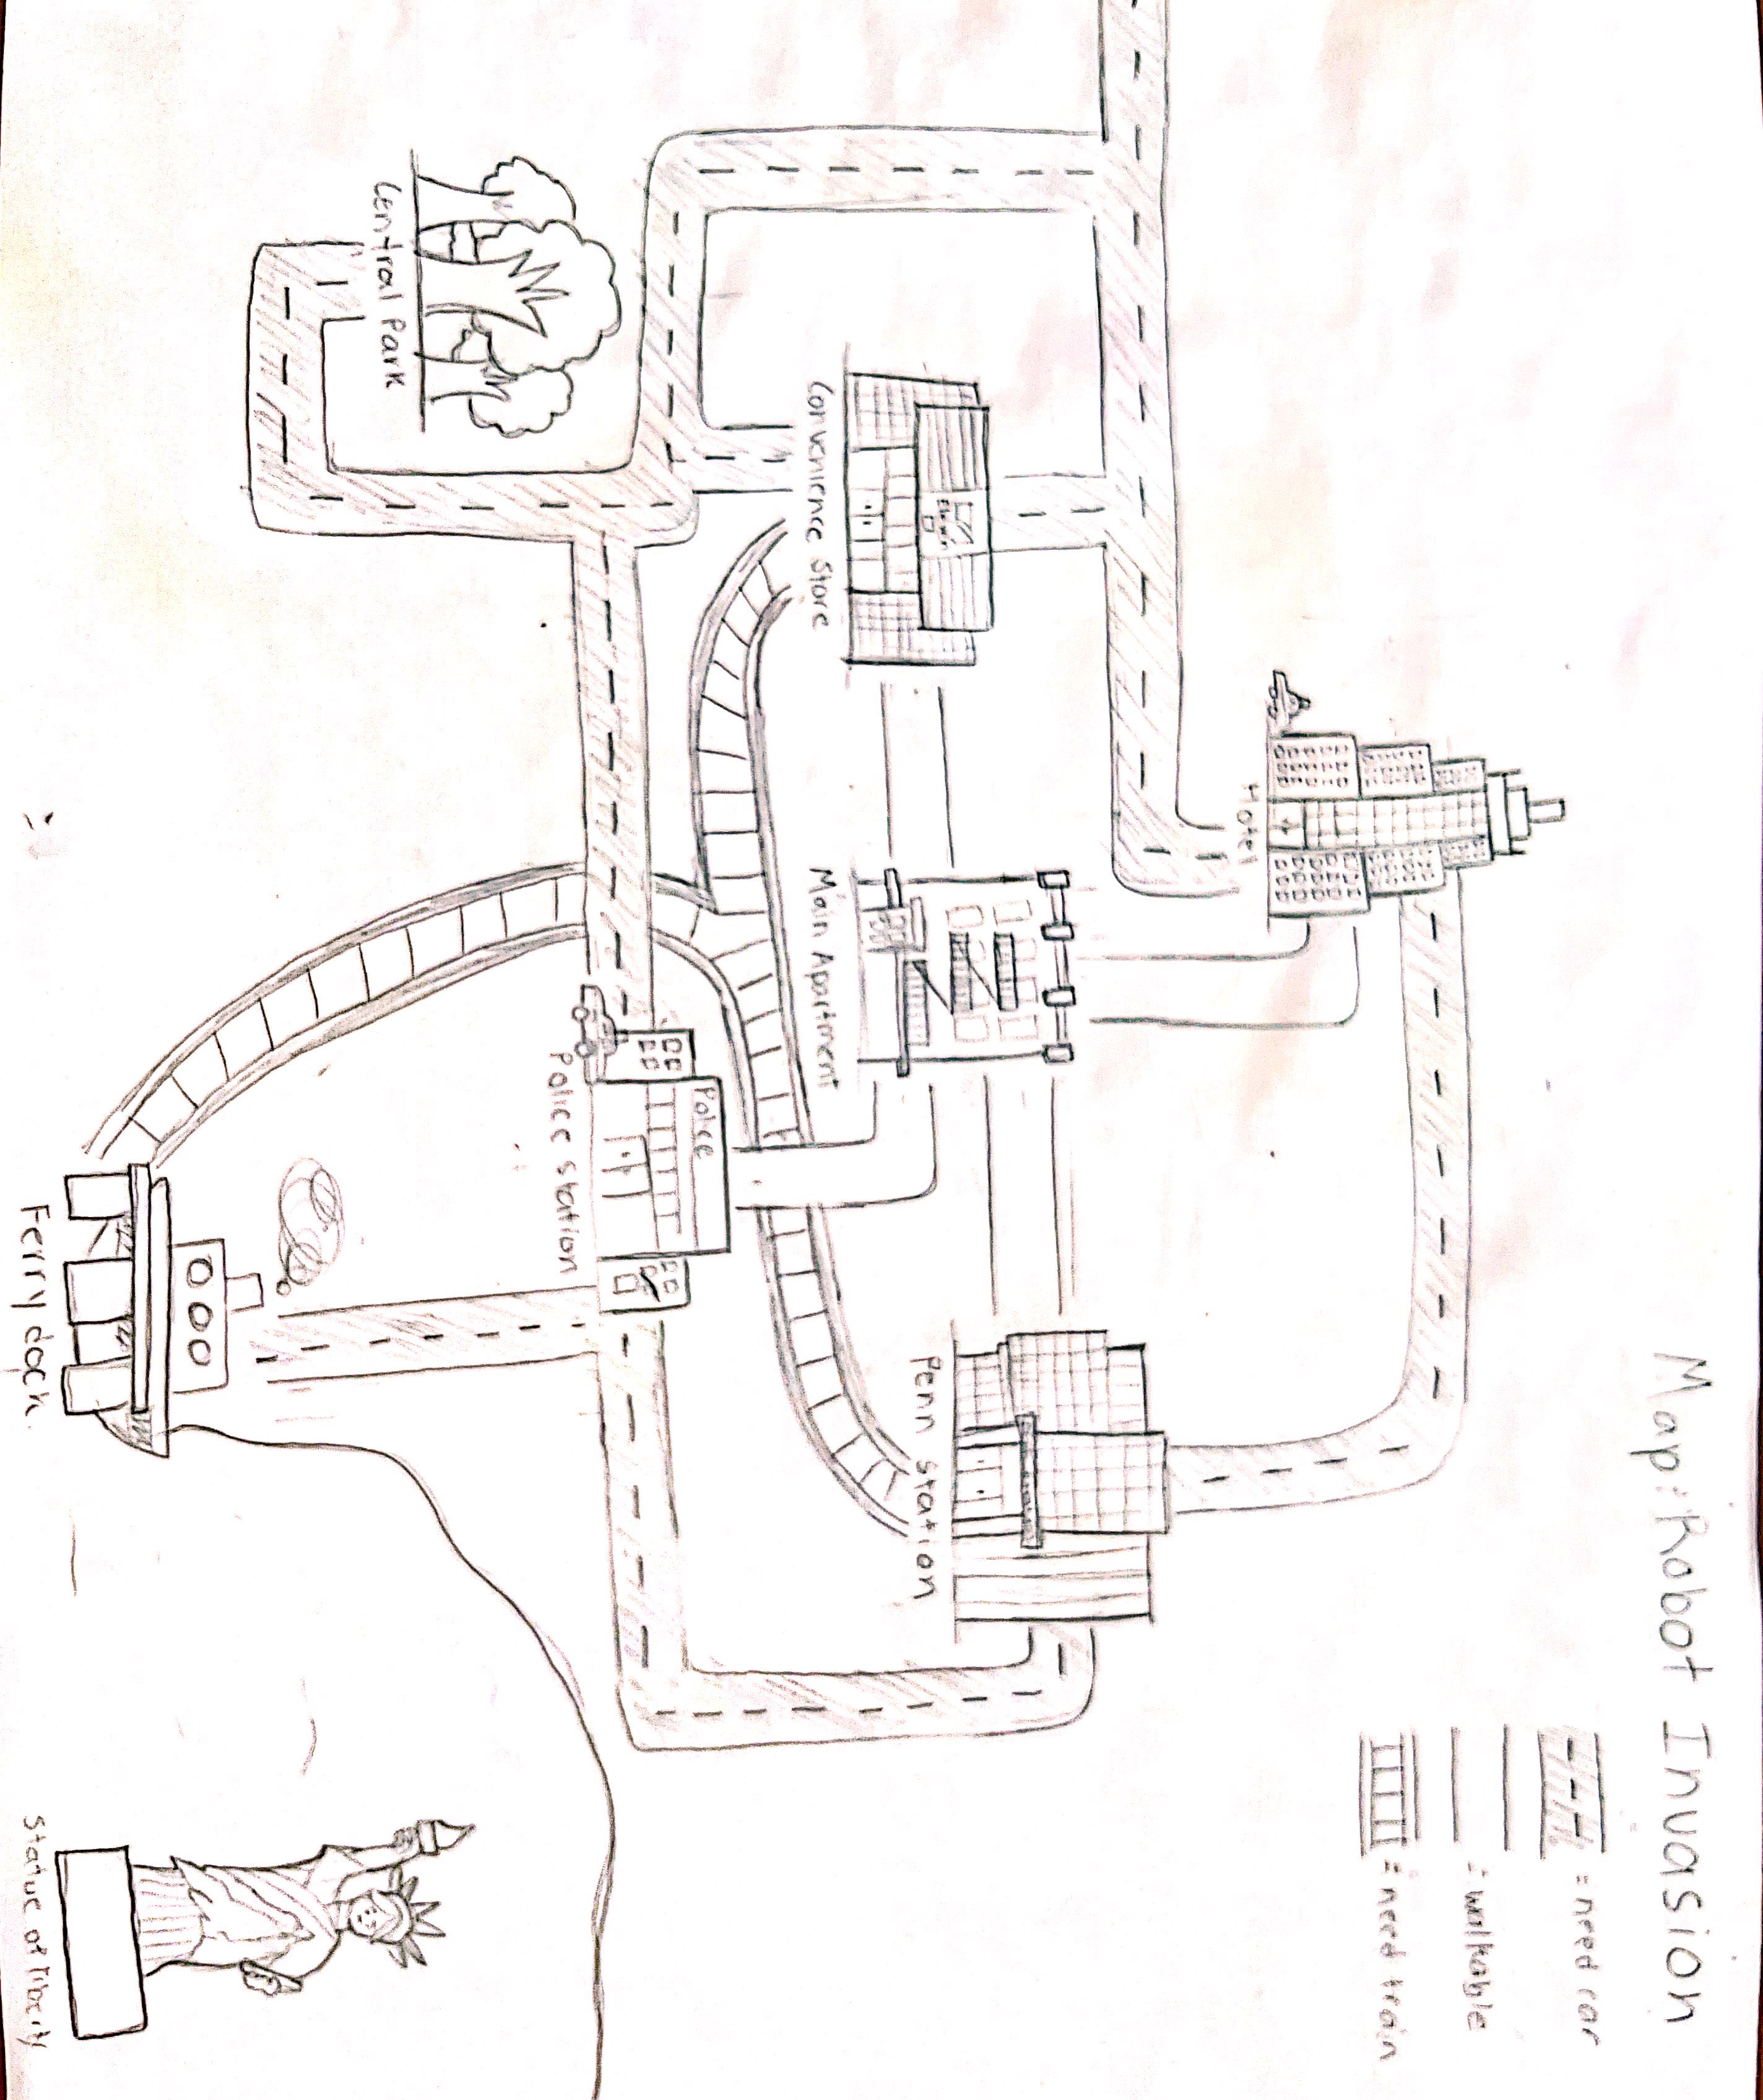 Map: Robot Invasion
= need car
= walkable
= need train
Hotel
Penn Station
Convenience Store
Main Apartment
Police
Police Station
Central Park
Ferry dock.
Statue of liberty